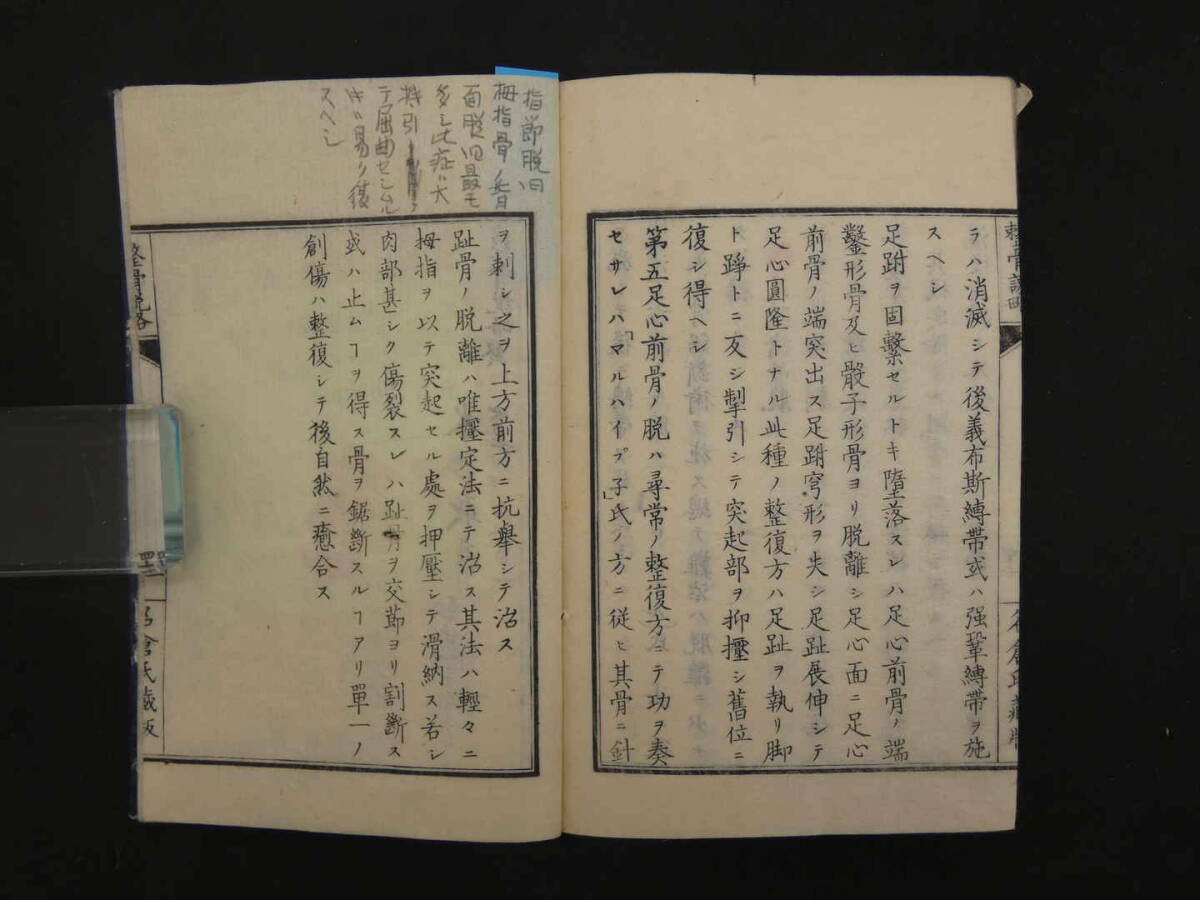 ラハ消滅シテ後義布斯縛帶或ハ强鞏縛帶ヲ施
スヘシ
足跗ヲ固繫セルトキ墮落スレハ足心前骨ノ端
鑿形骨及ヒ骰子形骨ヨリ脱離シ足心面ニ足心
前骨ノ端突出ス足跗穹形ヲ失シ足趾展伸シテ
足心圓隆トナル此種ノ整復方ハ足趾ヲ執リ脚
ト踭トニ反シ掣引シテ突起部ヲ抑壓シ舊位ニ
復シ得ヘシ
第五足心前骨ノ脱ハ尋常ノ整復方ニテ功ヲ奏
セサレハ「マルハイプ」子氏ノ方ニ従ヒ其骨ニ針
ヲ刺シ之ヲ上方前方ニ抗舉シテ治ス
趾骨ノ脱離ハ唯擡定法ニテ治ス其法ハ輕々ニ
拇指ヲ以テ突起セル處ヲ押壓シテ滑納ス若シ
肉部甚シク傷裂スレハ趾骨ヲ交節ヨリ割斷ス
或ハ止ムヿヲ得ス骨ヲ鋸斷スルヿアリ單一ノ
創傷ハ整復シテ後自然ニ癒合ス
指節脱臼
拇指骨ノ背
面脱臼最モ
多シ此症ハ大
テ屈曲セシムル
片ハ易ク復
スヘシ
名倉氏藏版